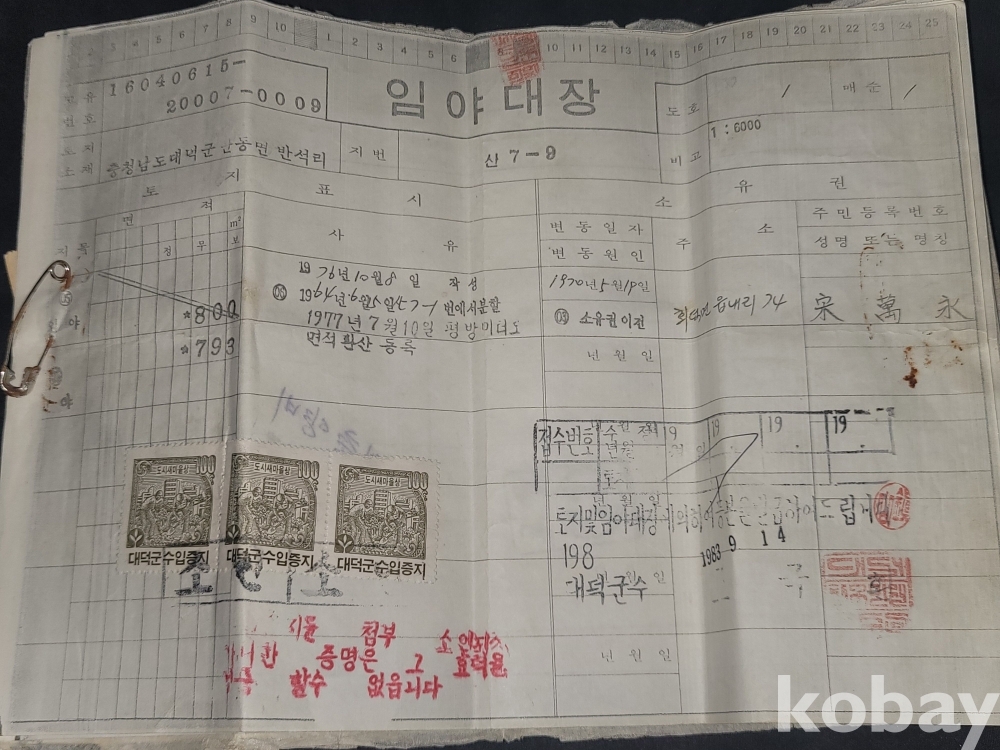 3 4 5 6 7 8 9 10 1 2 3 4 5 6 8 10 11 12 13 14 15 16 17 18 19 20 21 22 23 24 25
고유번호
16040615-
20007-0009
임야대장
도호
매순
비고
1:6000
토지소재
충청남도대덕군 탄동면 반석리
지번
산 7-9
토지표시
소유권
지목
면적
정 무 보
m²
사유
변동일자
변동원인
주소
주민등록번호
성명 또는 명칭
1976년10월8일 작성
번에서분할
*800
1977년 7월 10일 평방미터로
면적 환산 등록
*793
1970년5월19일
(03) 소유권이전
읍내리 74
宋萬永
년 월 일
접수번호
19 19 19
년 월 일
도시새마을상 100
대덕군수입증지
도시새마을상 100
대덕군수입증지
도시새마을상 100
대덕군수입증지
토지및임야대장
드립니
198
1983 9 14
대덕군수
첨부
증명은 그 효력을
할수 없읍니다
년 월 일
kobay